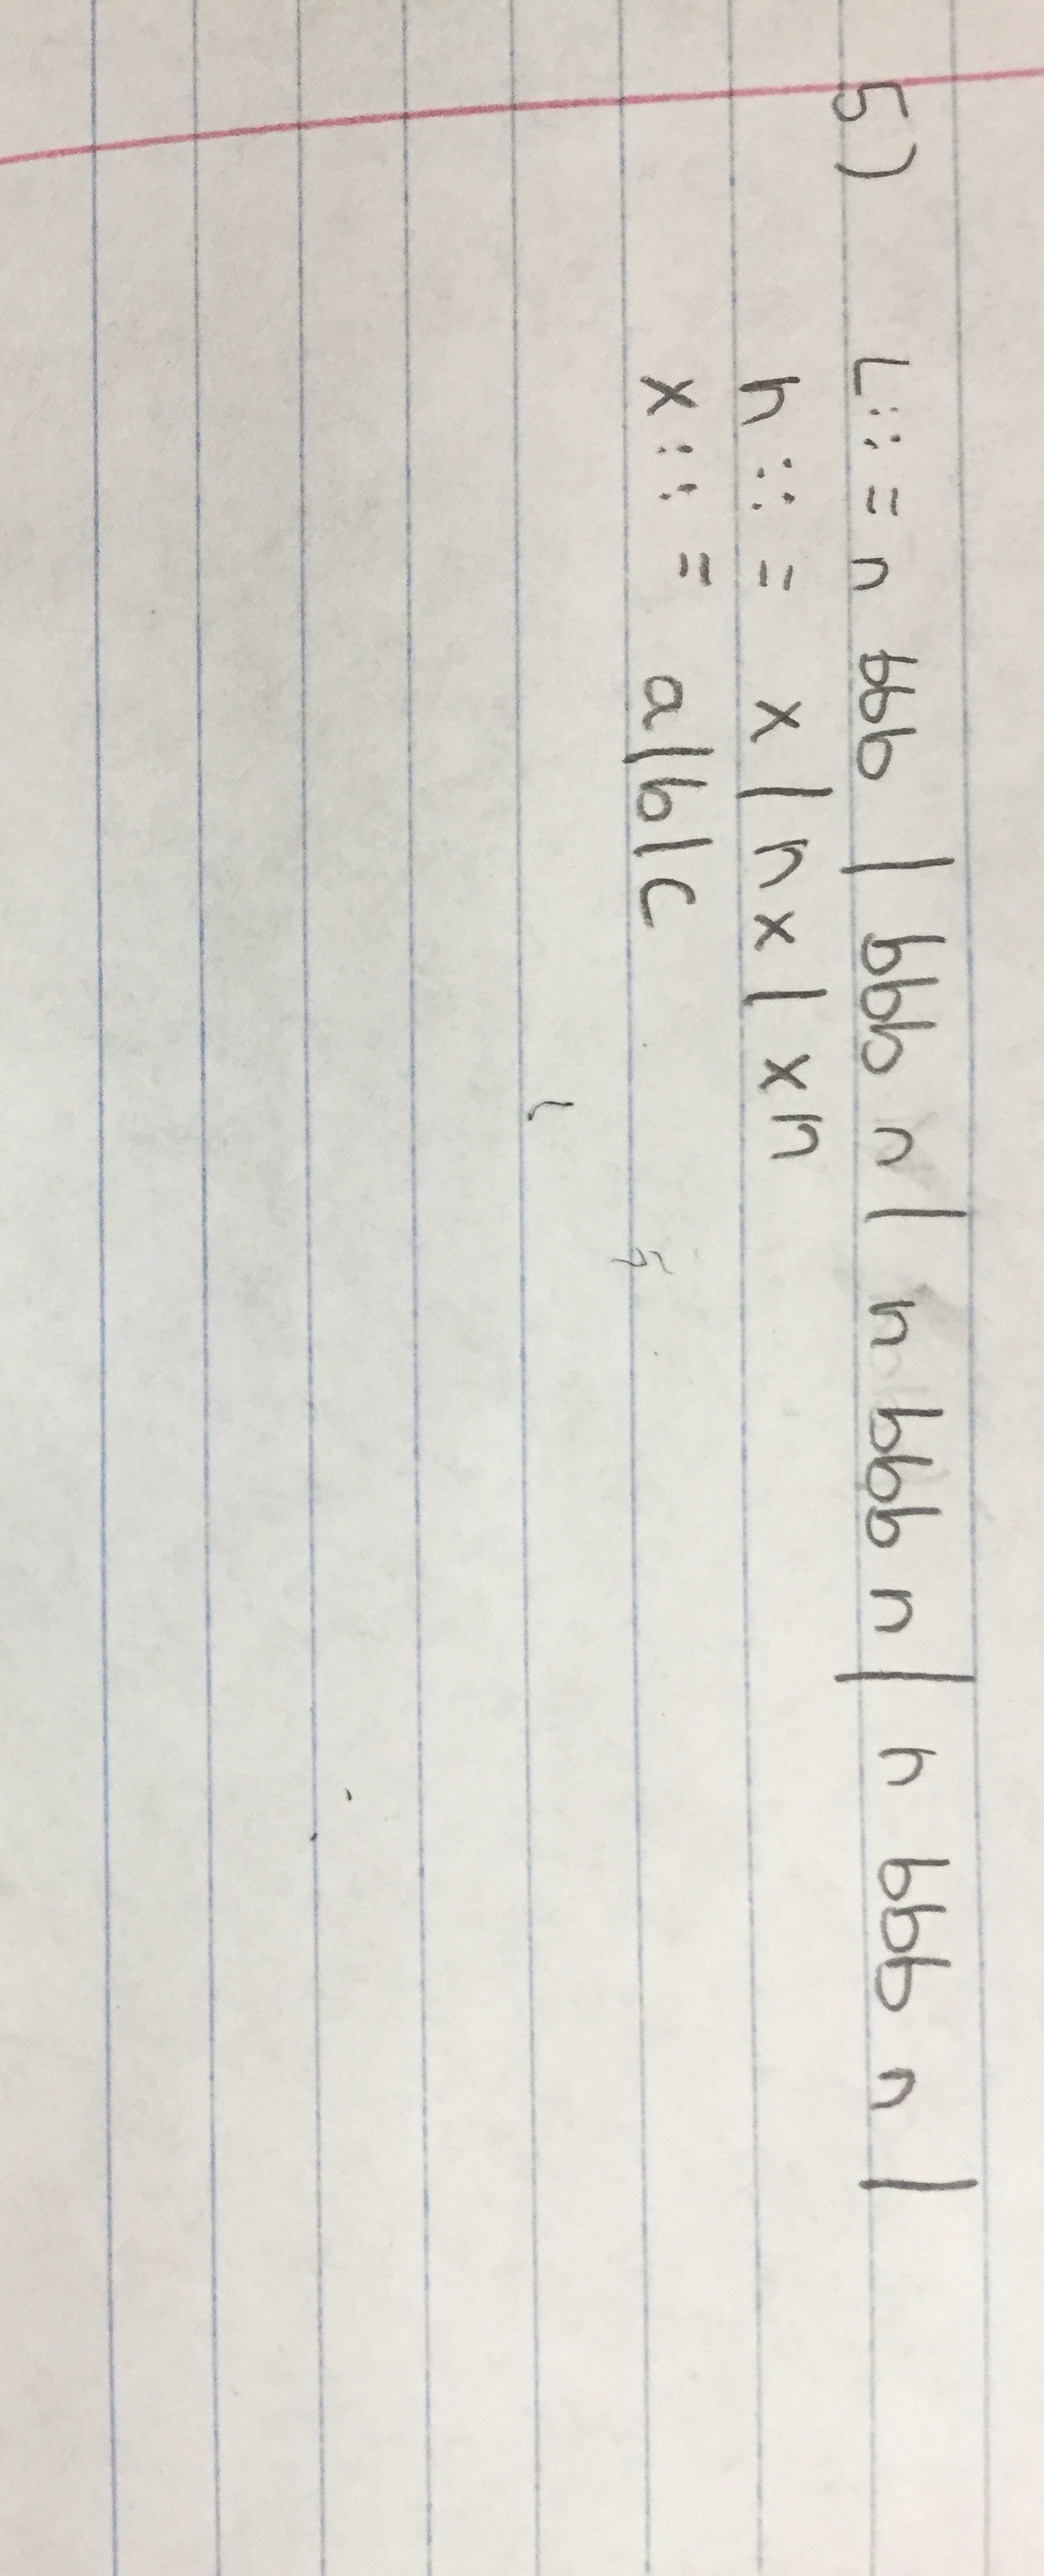 5) L::= n bbb | bbb n | n bbb n | n bbb n |
n::= x | nx | xn
x::= a|b|c